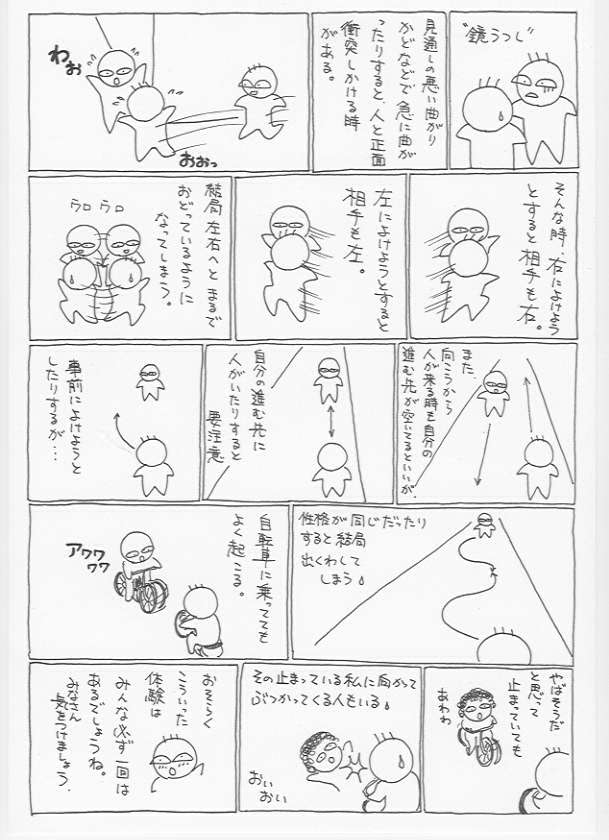 "鏡うつし"
見通しの悪い曲がり
かどなどで急に曲が
ったりすると、人と正面
衝突しかける時
がある。
わぉ
おおっ
そんな時、右によけよう
とすると相手も右。
左によけようとすると
相手も左。
結局左右へとまるで
おどっているように
なってしまう。
ウロ ウロ
また、
向こうから
人が来る時も自分の
進む先が空いてるといいが、
自分の進む先に
人がいたりすると
要注意
事前によけようと
したりするが…
性格が同じだったり
すると結局
出くわして
しまう。
自転車に乗ってても
よく起こる。
アワワ
ワワ
やばそうだ
と思って
止まっていても
あわわ
その止まっている私に向かって
ぶつかってくる人もいる。
おい
おい
おそらく
こういった
体験は
みんな必ず一回は
あるでしょうね。
みなさん
気をつけましょう。